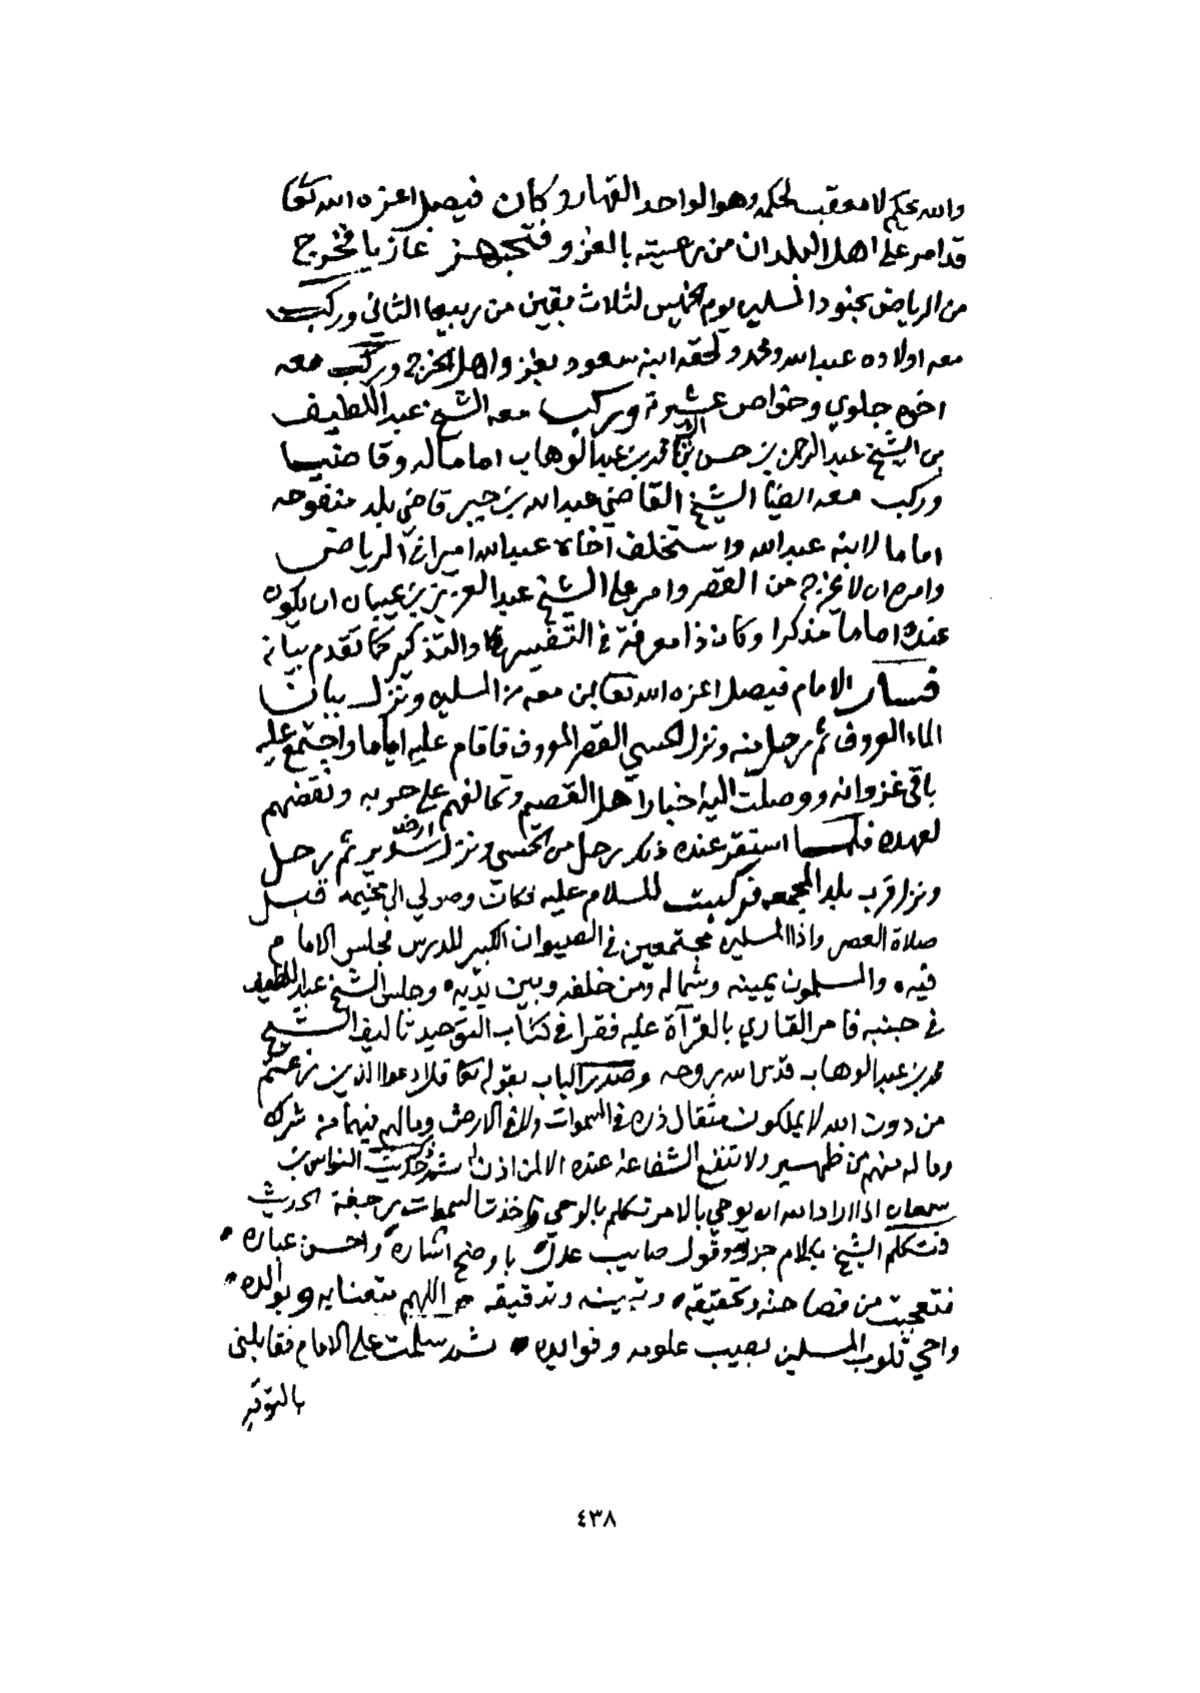 والله يحكم لا معقب لحكمه وهو الواحد القهار وكان فيصل اعزه الله تعا
قد امر على اهل البلدان من رعيته بالغزو فتجهز غازيا فخرج
من الرياض بجنود المسلمين يوم الخميس لثلاث بقين من ربيع الثاني وركب
معه اولاده عبدالله ومحمد ولحقه ابنه سعود بغزو اهل الخرج وركب معه
اخوه جلوي وخواص عشيرته وركب معه الشيخ عبداللطيف
بن الشيخ عبدالرحمن بن حسن بن الشيخ محمد بن عبدالوهاب اماما له وقاضيا
وركب معه ايضا الشيخ القاضي عبدالله بن جبر قاضي بلد منفوحه
اماما لابنه عبدالله واستخلف اخاه عبدالله اميرا في الرياض
وامره ان لا يخرج من القصر وامر على الشيخ عبدالعزيز بن عيبان ان يكون
عنده اماما مذكرا وكان ذا معرفة في التفسير والتذكير كما تقدم بيانه
فسار الامام فيصل اعزه الله تعا بمن معه من المسلمين ونزل بنبان
الماء المعروف ثم رحل منه ونزل الحسي القصر المعروف فاقام عليه اياما واجتمع عليه
باقي غزوانه ووصلت اليه اخبار اهل القصيم وتمالئهم على حربه ونقضهم
لعهده فلما استقر عنده ذلك رحل من الحسي ونزل ارض سدير ثم رحل
ونزل قرب بلد المجمعه فركبت للسلام عليه فكان وصولي الى مخيمه قبل
صلاة العصر واذا المسلمين مجتمعين في الصيوان الكبير للدرس فجلس الامام
فيه والمسلمون يمينه وشماله ومن خلفه وبين يديه وجلس الشيخ عبداللطيف
في جنبه فامر القاري بالقرآة عليه فقرا في كتاب التوحيد تاليف الشيخ
محمد بن عبدالوهاب قدس الله روحه وصدر الباب بقوله تعا قل ادعوا الذين زعمتم
من دون الله لا يملكون مثقال ذره في السموات ولا في الارض ومالهم فيهما من شرك
وماله منهم من ظهير ولا تنفع الشفاعة عنده الا لمن اذن له ثم حديث النواس بن
سمعان اذا اراد الله ان يوحي بالامر تكلم بالوحي فاخذت السموات رجفة الحديث
فتكلم الشيخ بكلام جزل وقول صايب عدل باوضح اشاره واحسن عباره
فتعجبت من فصاحته وتحقيقه وتبيينه وتدقيقه اللهم متعنا به وبوالده
واحي قلوب المسلمين بصيب علومه وفوايده ثم سلمت على الامام فقابلني
بالتوقير
٤٣٨